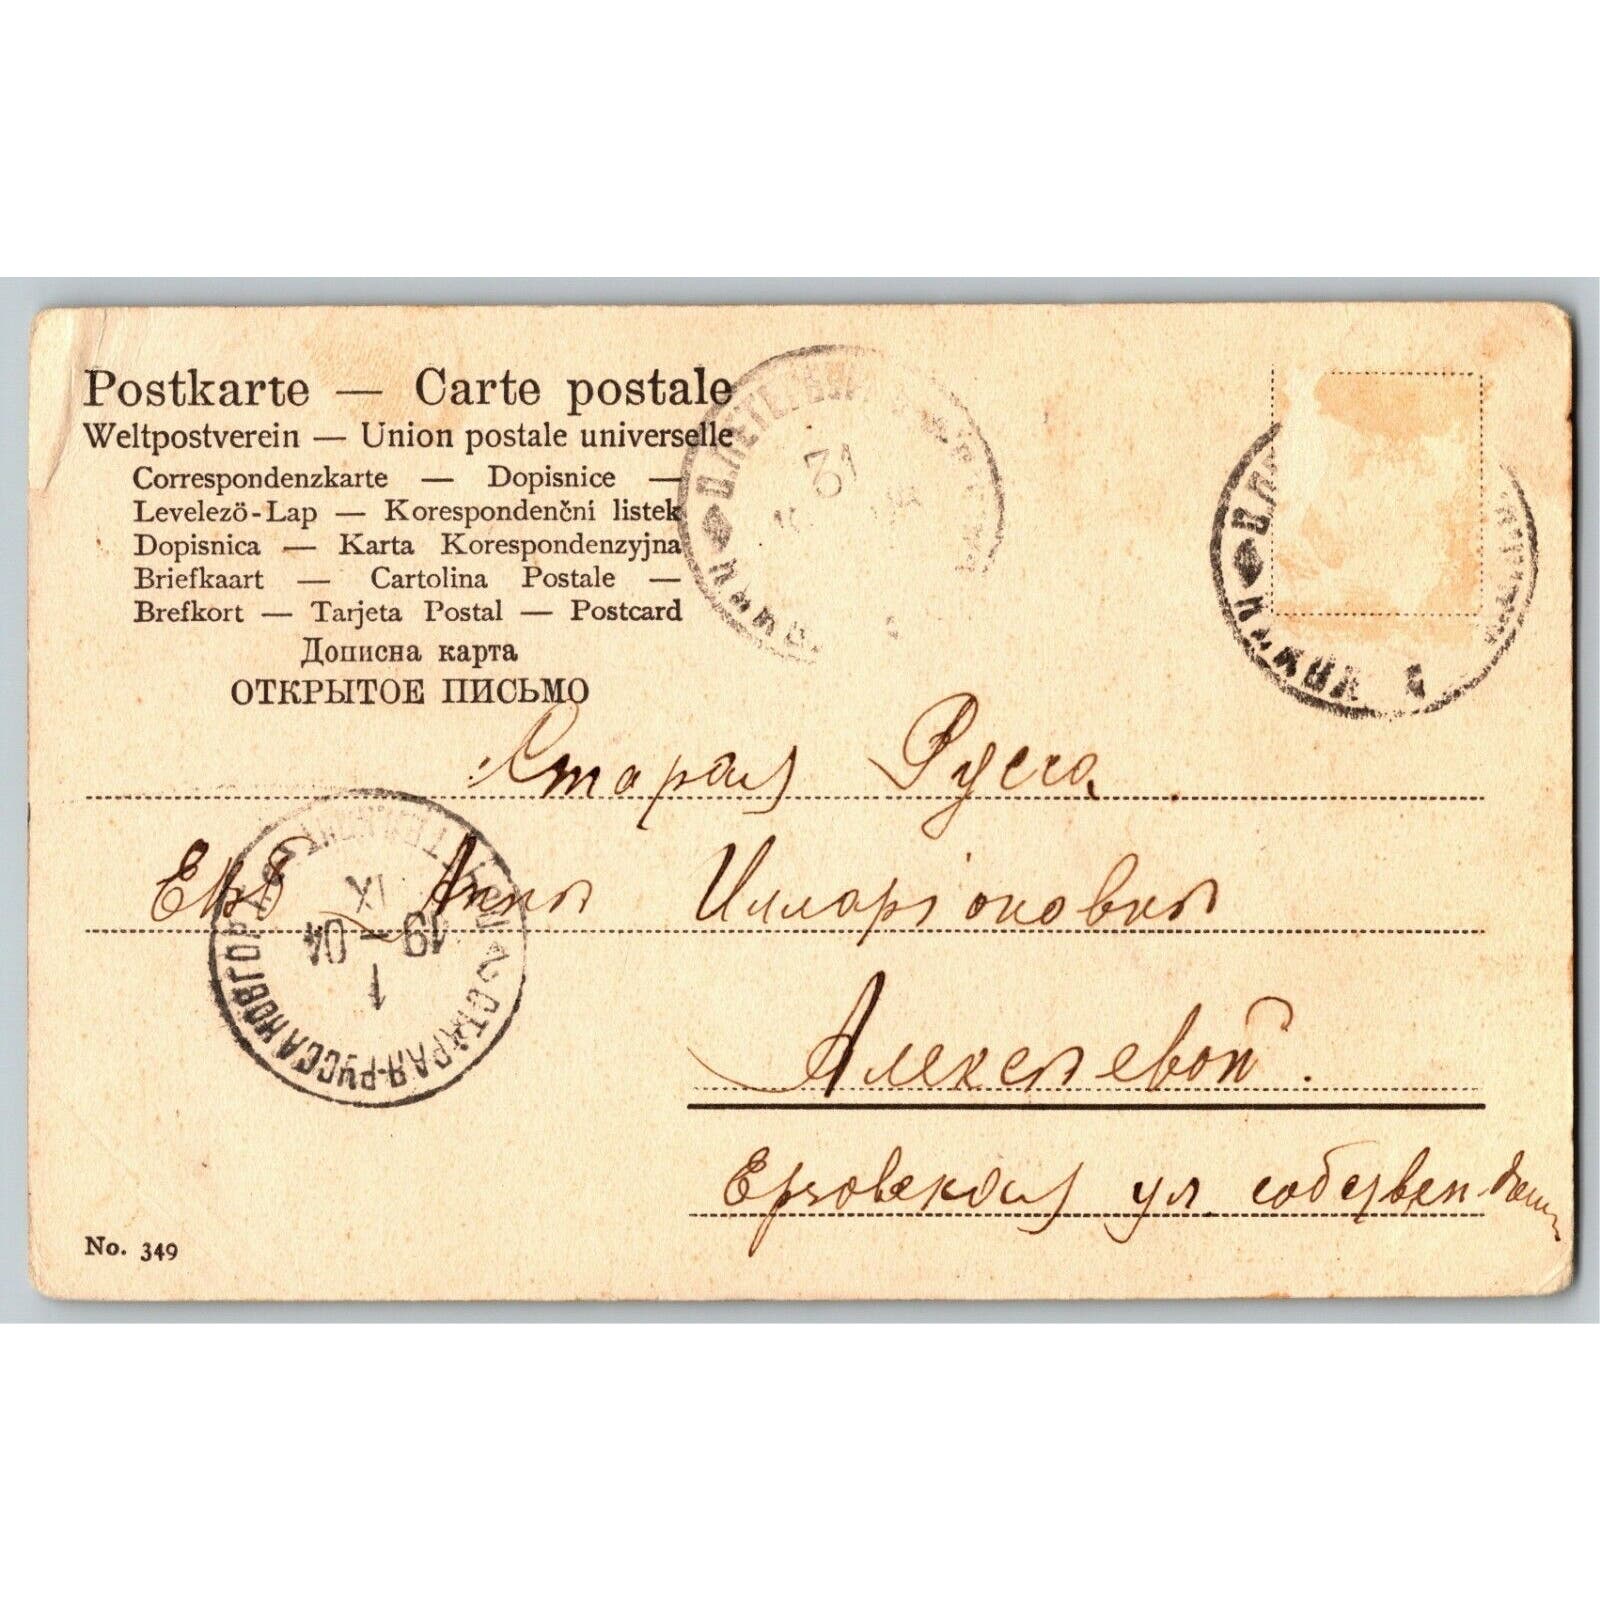 Postkarte — Carte postale
Weltpostverein — Union postale universelle
Correspondenzkarte — Dopisnice —
Levelezö-Lap — Korespondenční listek
Dopisnica — Karta Korespondenzyjna
Briefkaart — Cartolina Postale —
Brefkort — Tarjeta Postal — Postcard
Дописна карта
ОТКРЫТОЕ ПИСЬМО
31
Старая Русса
Анна Илларіоновна
Алексѣевой.
ул собствен. дом
СТАРАЯ-РУССА НОВГОР.
IX
19 – 04
1
No. 349